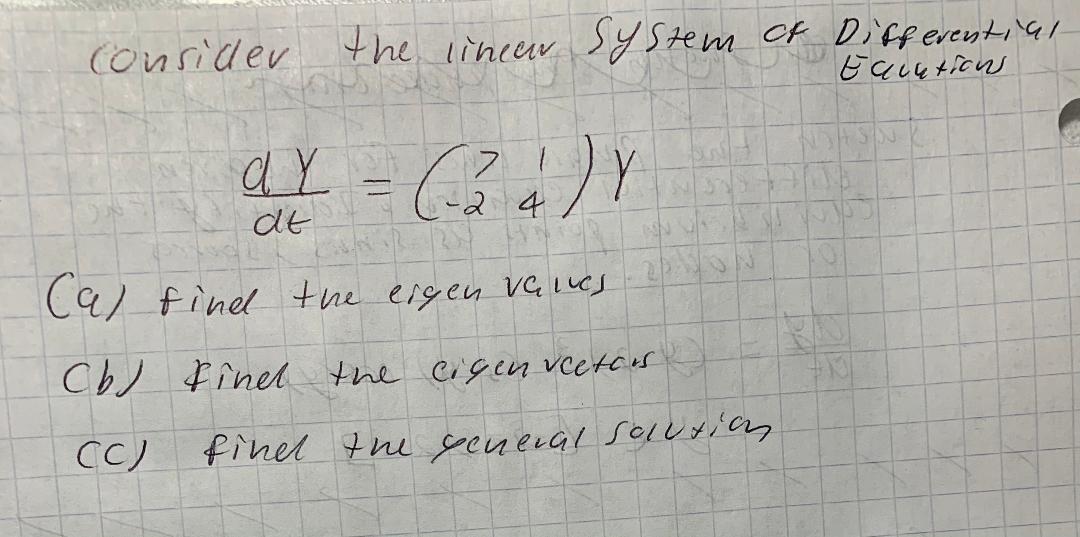 consider the linear System of Differential
Equations
dY/dt = (7 1
-2 4) Y
(a) find the eigen values
(b) Find the eigen vectors
(c) find the general solution